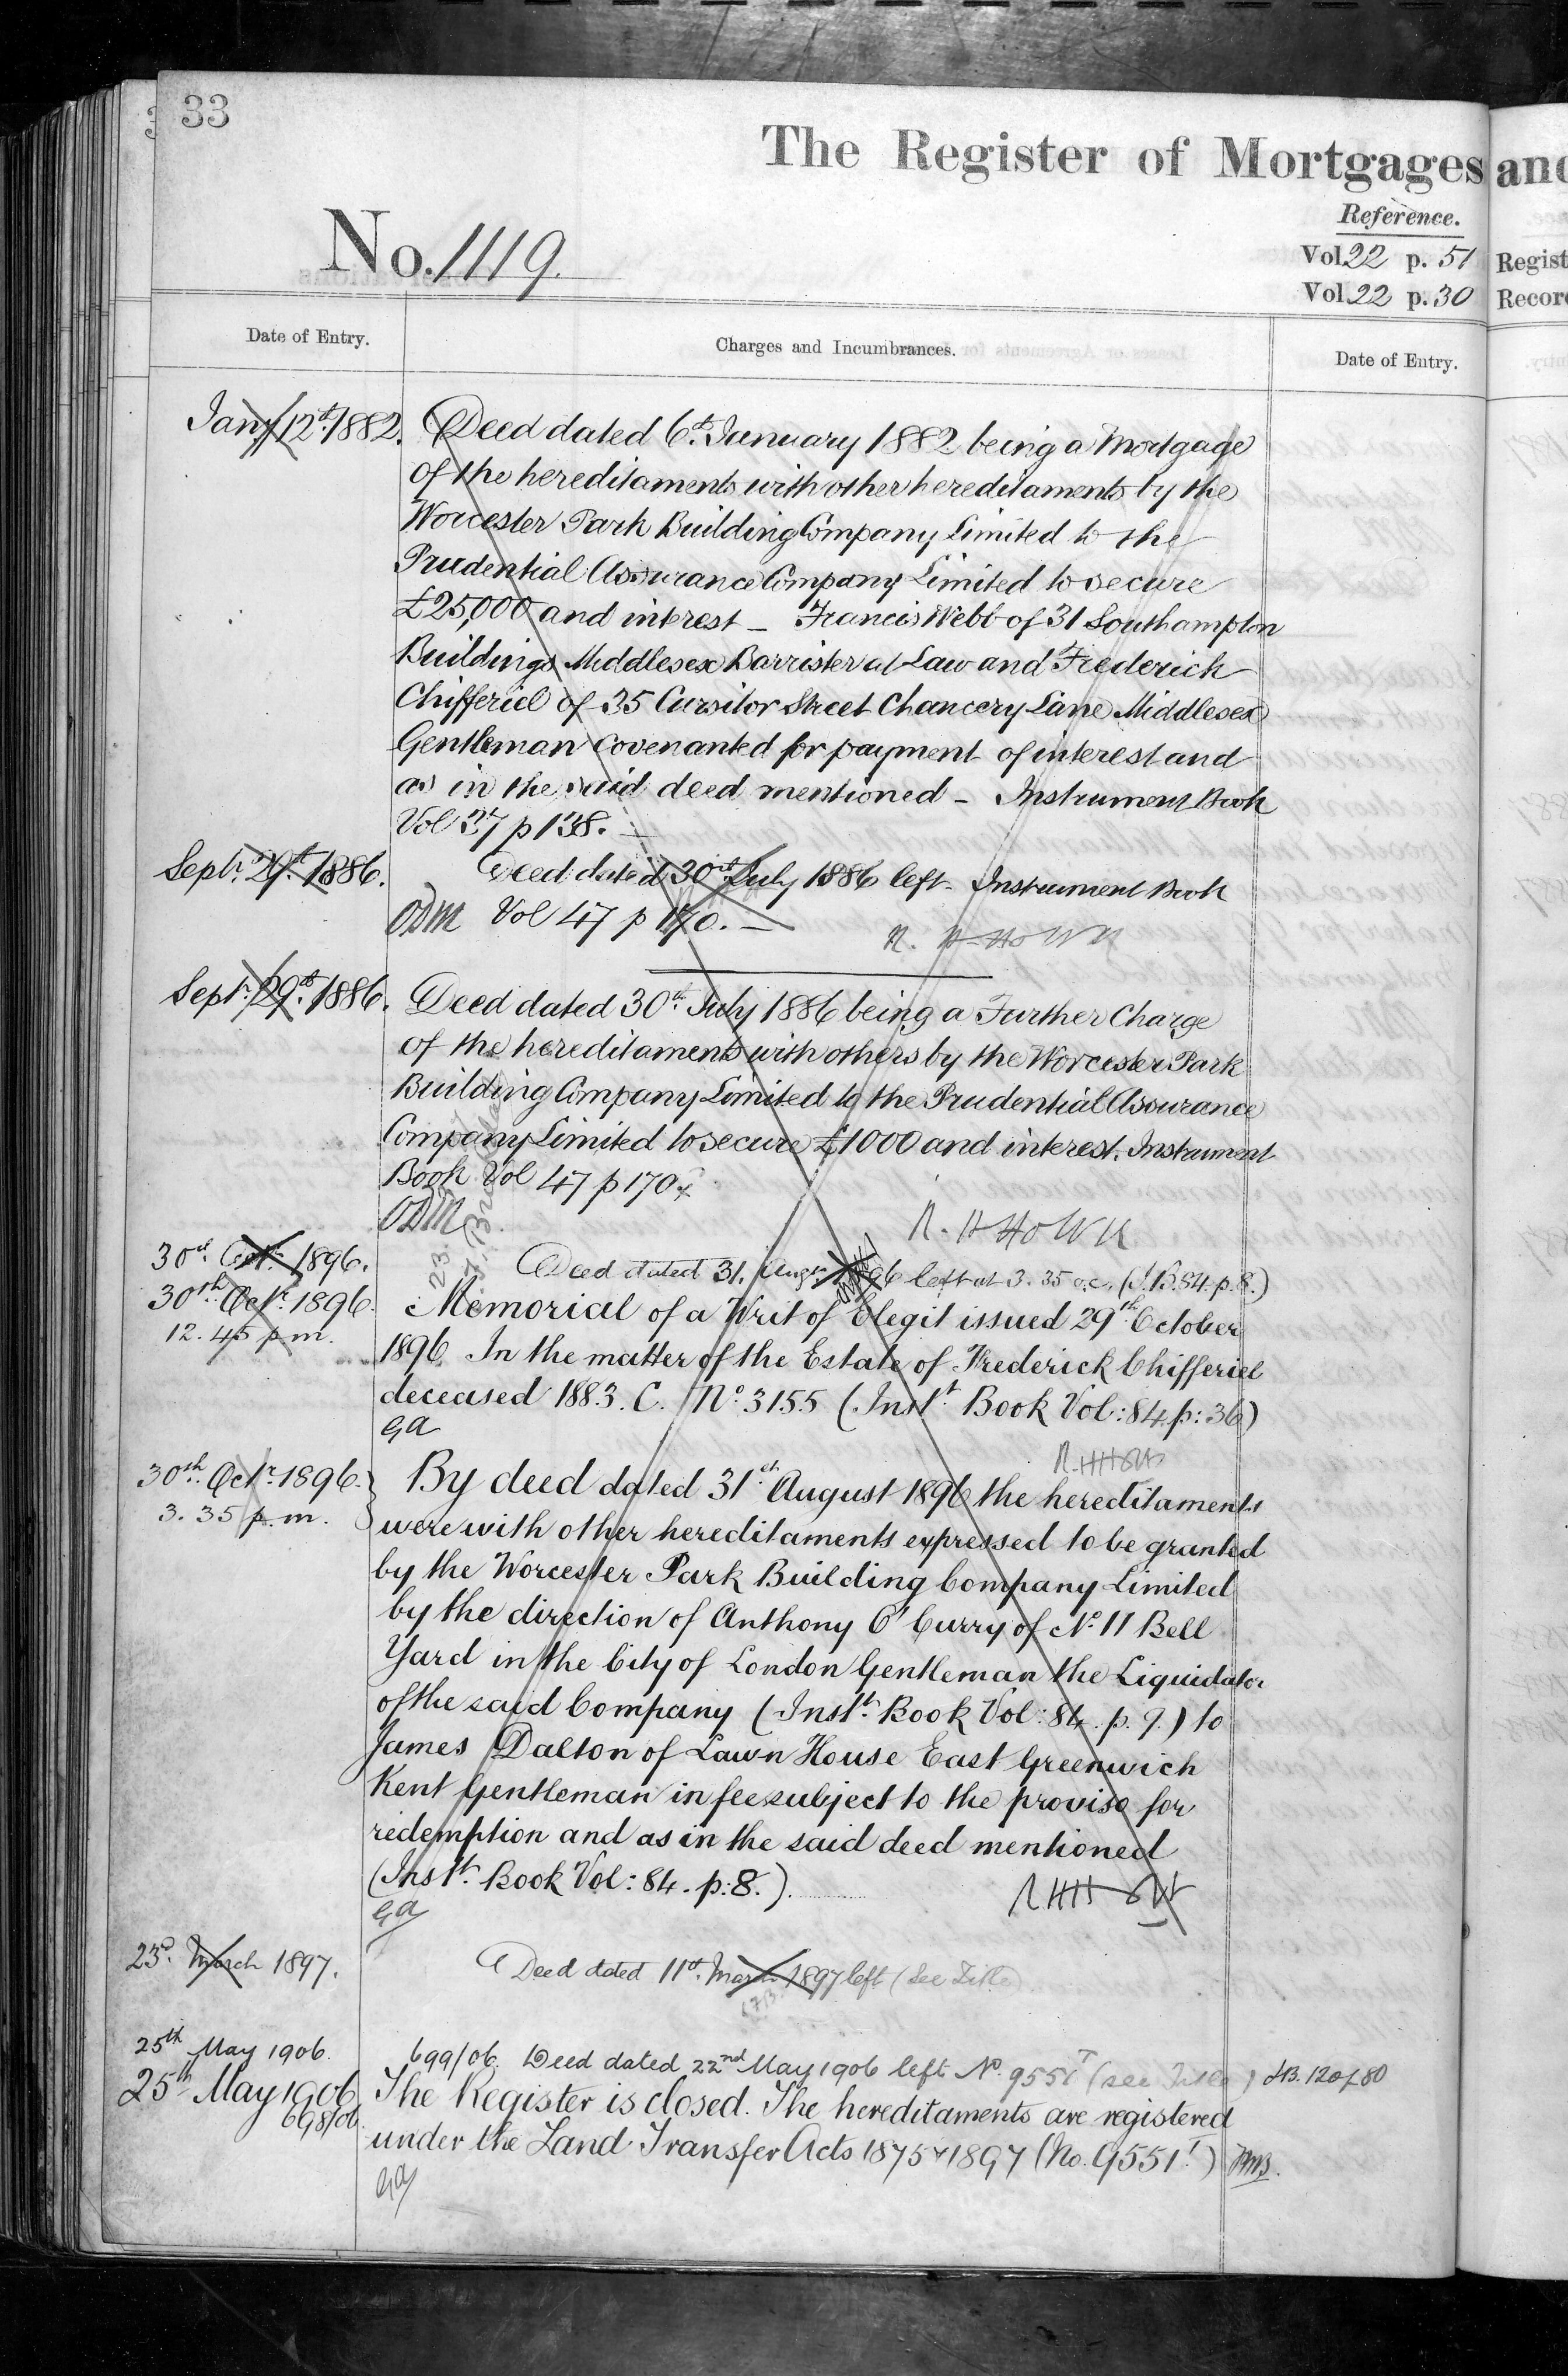 33
The Register of Mortgages and
Reference.
No. 1119.
Vol. 22 p. 51 Regist
Vol. 22 p. 30 Recor
Date of Entry. Charges and Incumbrances. Date of Entry.
Jany 12th 1882. Deed dated 6th January 1882 being a Mortgage
of the hereditaments with other hereditaments by the
Worcester Park Building Company Limited to the
Prudential Assurance Company Limited to secure
£25,000 and interest _ Francis Webb of 31 Southampton
Buildings Middlesex Barrister at Law and Frederick
Chifferiel of 35 Cursitor Street Chancery Lane Middlesex
Gentleman covenanted for payment of interest and
as in the said deed mentioned - Instrument Book
Vol 37 p 138. _
Septr. 29th 1886. Deed dated 30th July 1886 left - Instrument Book
ODM Vol 47 p 170. —
Septr. 29th 1886. Deed dated 30th July 1886 being a Further Charge
of the hereditaments with others by the Worcester Park
Building Company Limited to the Prudential Assurance
Company Limited to secure £1000 and interest. Instrument
Book Vol 47 p 170.
ODM
30th Octr. 1896. Deed dated 31. Augt. 1896 left at 3.35 o.c. (I.B. 84. p. 8.)
30th Octr. 1896. Memorial of a Writ of Elegit issued 29th October
12.45 p.m. 1896. In the matter of the Estate of Frederick Chifferiel
deceased 1883. C. No. 3155 (Instt. Book Vol: 84. p: 36)
GA
30th Octr. 1896. By deed dated 31st August 1896 the hereditaments
3.35 p.m. were with other hereditaments expressed to be granted
by the Worcester Park Building Company Limited
by the direction of Anthony O'Curry of No. 11 Bell
Yard in the City of London Gentleman the Liquidator
of the said Company (Instt. Book Vol: 84. p. 9.) to
James Dalton of Lawn House East Greenwich
Kent Gentleman in fee subject to the proviso for
redemption and as in the said deed mentioned
(Instt. Book Vol: 84. p: 8.)
GA
23d. March 1897. Deed dated 11th. March 1897 left (See Title)
25th May 1906. 699/06. Deed dated 22nd May 1906 left No. 9551T (see Title) I.B. 120f 80
25th May 1906 The Register is closed. The hereditaments are registered
698/06. under the Land Transfer Acts 1875 & 1897 (No. 9551T.)
GA